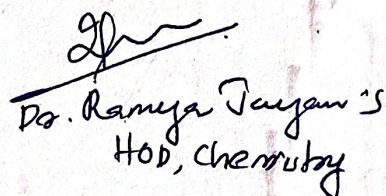 Dr. Ramya Jayan's
HOD, Chemistry